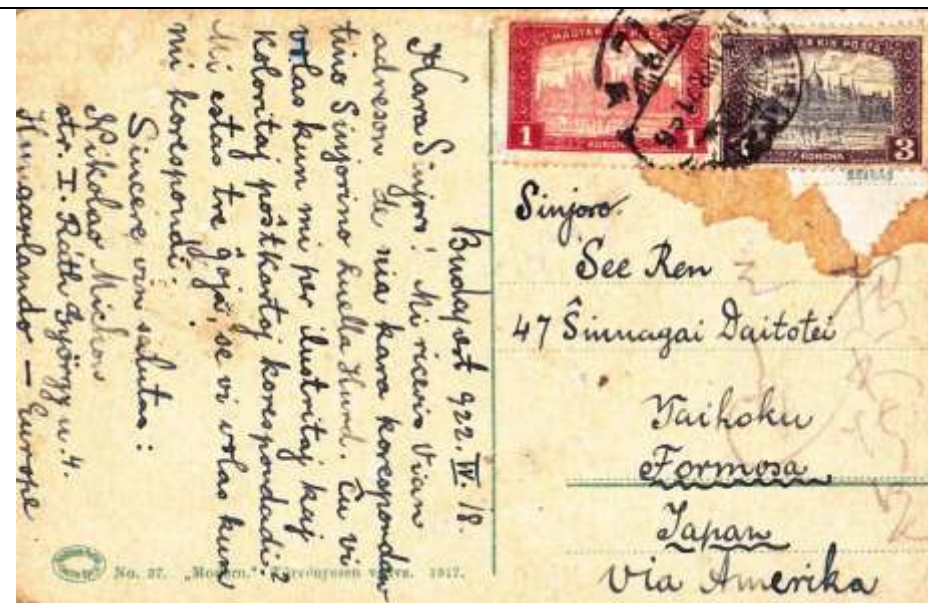 Budapest 922. IV. 18.
Kara Sinjoro! Mi ricevis Vian
adreson de nia kara korespondan
tino Sinjorino Luella Hurd. Ĉu vi
volas kun mi per ilustritaj kaj
koloritaj poŝtkartoj korespondadi?
Mi estas tre ĝoja, se vi volas kun
mi korespondi.
Sincere vin salutas:
Nikolao Michow
str. I. Ráth György u. 4.
Hungarlando — Europe
MAGYAR
1 1
KORONA
MAGYAR KIR. POSTA
KORONA 3
Sinjoro
See Ren
47 Ŝinnagai Daitotei
Taihoku
Formosa
Japan
Via Amerika
No. 37. „Modern." Törvényesen védve. 1917.